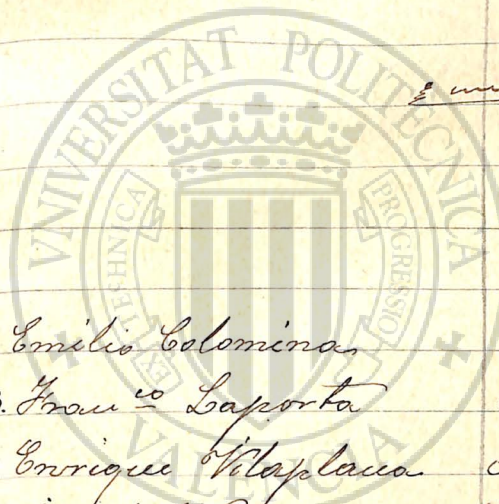 VNIVERSITAT POLITECNICA
VALENCIA
EX TECHNICA
PROGRESSIO
Emilio Colomina
Franco Laporta
Enrique Vilaplana